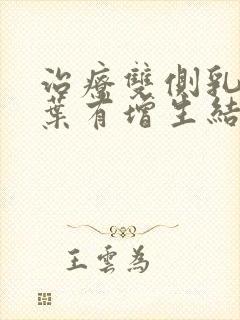 治療雙側乳
葉有增生結
王雲為